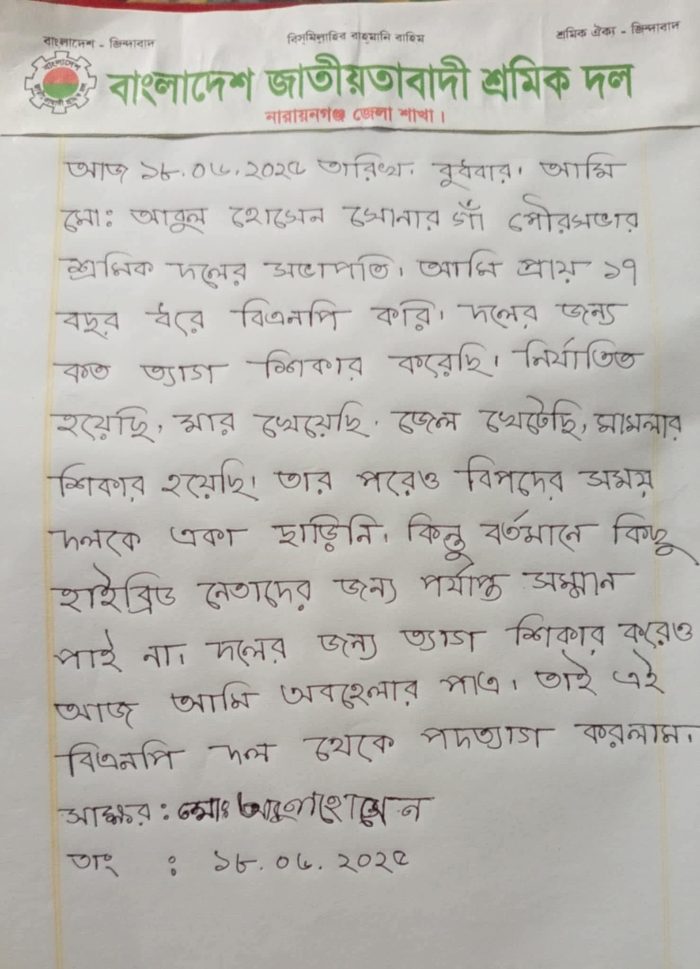 বাংলাদেশ - জিন্দাবাদ
বিসমিল্লাহির রাহমানির রাহিম
শ্রমিক ঐক্য - জিন্দাবাদ
বাংলাদেশ জাতীয়তাবাদী শ্রমিক দল
নারায়নগঞ্জ জেলা শাখা।
আজ ১৮.০৬.২০২৫ তারিখ, বুধবার। আমি
মোঃ আবুল হোসেন সোনার গাঁ পৌরসভার
শ্রমিক দলের সভাপতি। আমি প্রায় ১৭
বছর ধরে বিএনপি করি। দলের জন্য
কত ত্যাগ শিকার করেছি। নির্যাতিত
হয়েছি, মার খেয়েছি, জেল খেটেছি, মামলার
শিকার হয়েছি। তার পরেও বিপদের সময়
দলকে একা ছাড়িনি। কিন্তু বর্তমানে কিছু
হাইব্রিড নেতাদের জন্য পর্যাপ্ত সম্মান
পাই না। দলের জন্য ত্যাগ শিকার করেও
আজ আমি অবহেলার পাত্র। তাই এই
বিএনপি দল থেকে পদত্যাগ করলাম।
সাক্ষর : মোঃ আবুল হোসেন
তাং : ১৮.০৬.২০২৫